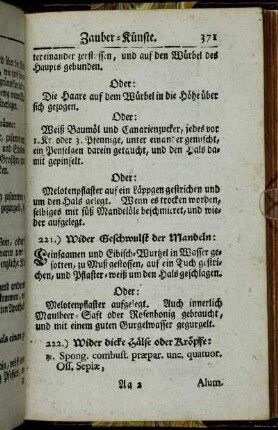 Zauber-Künste. 371
ter einander zerstossen, und auf den Würbel des
Haupts gebunden.
Oder:
Die Haare auf dem Würbel in die Höhe über
sich gezogen.
Oder:
Weiß Baumöl und Canarienzucker, jedes vor
1. Kr. oder 3. Pfennige, unter einander gemischt,
ein Penselgen darein getaucht, und den Hals da-
mit gepinselt.
Oder:
Melotenpflaster auf ein Läppgen gestrichen und
um den Hals gelegt. Wenn es trocken worden,
selbiges mit süß Mandelöle beschmieret, und wie-
der aufgelegt.
221.) Wider Geschwulst der Mandeln:
Leinsaamen und Eibisch-Wurtzel in Wasser ge-
sotten, zu Muß gestossen, auf ein Tuch gestri-
chen, und Pflaster-weiß um den Hals geschlagen.
Oder:
Melotenpflaster aufgelegt. Auch innerlich
Maulbeer-Saft oder Rosenhonig gebraucht,
und mit einem guten Gurgelwasser gegurgelt.
222.) Wider dicke Hälse oder Kröpffe:
℞. Spong. combust. præpar. unc. quatuor.
Oss. Sepiæ,
Aa 2 Alum.